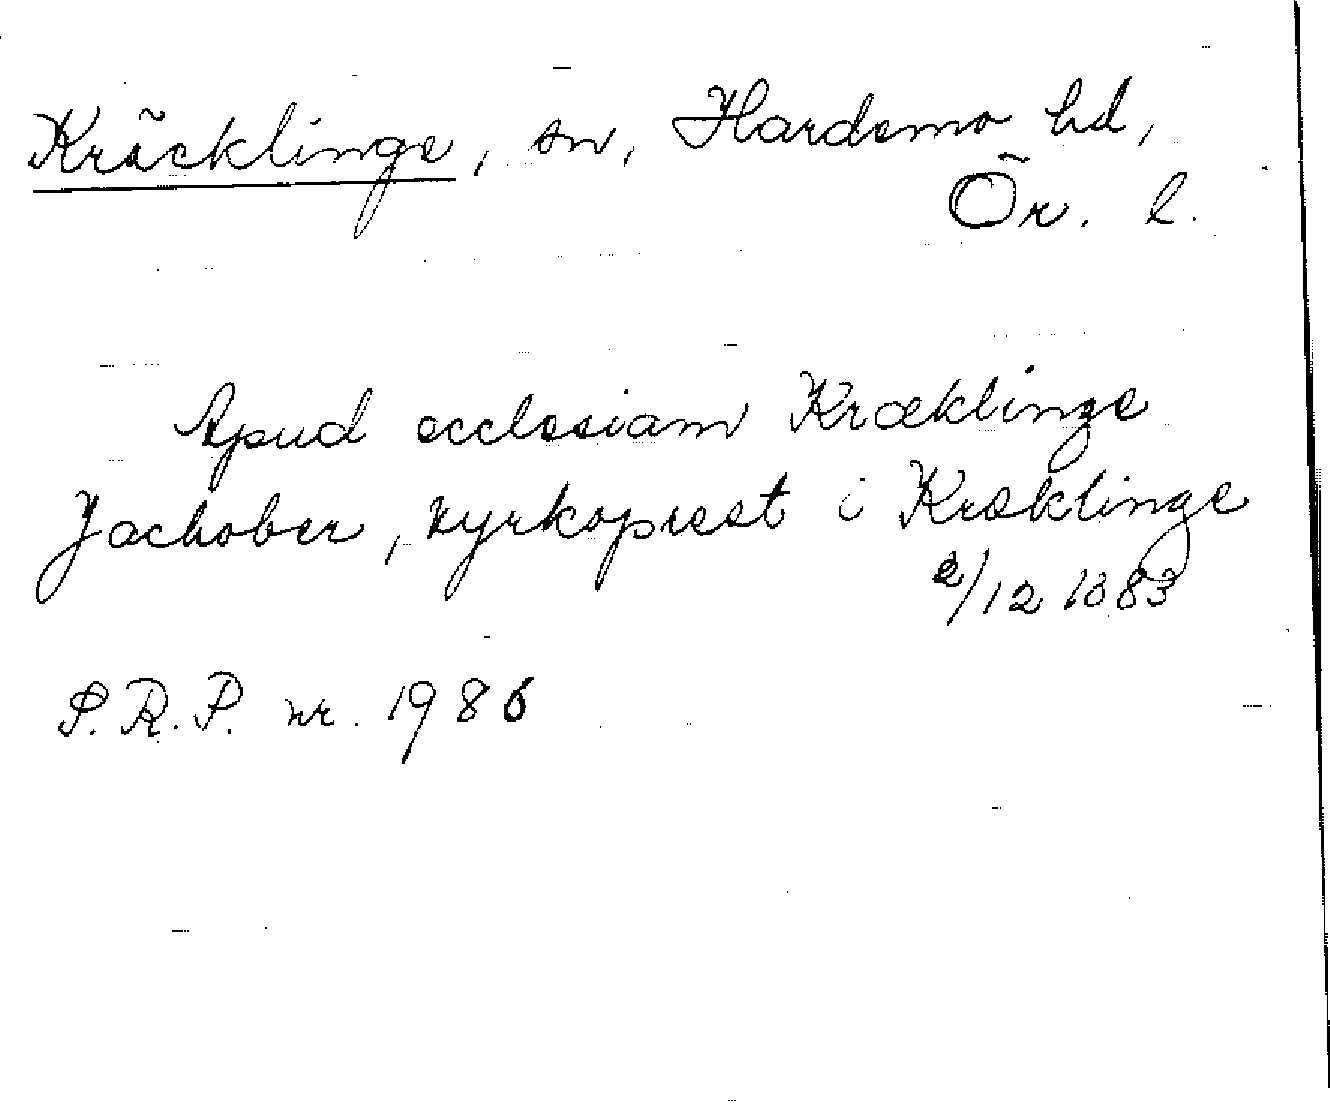 Kräcklinge, sn, Hardemo hd,
Ör. l.
Apud ecclesiam Kræklinge
Jachober, kyrkoprest i Kræklinge
2/12 1383
S.R.P. nr. 1986